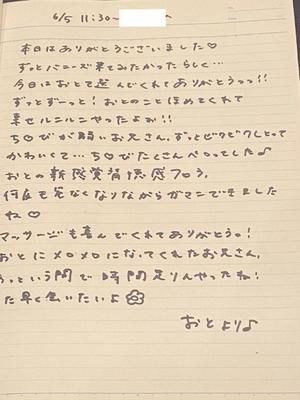 6/5 11:30〜
本日はありがとうございました♡
ずっとバニーズ来てみたかったらしく…
今日はおとで選んでくれてありがとうっっ!!
ずっとずーっと!おとのことほめてくれて
幸せルンルンやったよぉ!!
ち♡びが弱いお兄さん。ずっとビクビクしとって
かわいくて…ち♡びたくさんペロッてした♪
おとの新感覚背徳感フロう、
何度も危なくなりながらガマンできました
ね♡
マッサージも喜んでくれてありがとう。!
おとにメロメロになってくれたお兄さん。
っという間で時間足りんやったね!
た早く会いたいよ
おとより♪